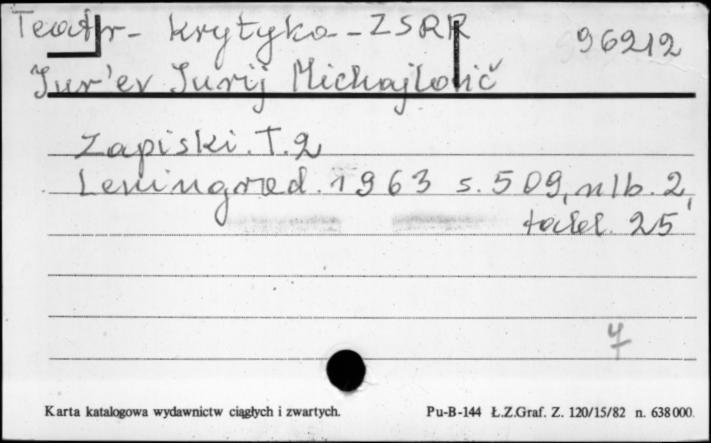 Teatr - krytyka - ZSRR 96212
Jur'ev Jurij Michajlovič
Zapiski. T. 2
Leningrad. 1963 s. 509, nlb. 2,
tabl. 25
4
Karta katalogowa wydawnictw ciągłych i zwartych. Pu-B-144 Ł.Z.Graf. Z. 120/15/82 n. 638000.